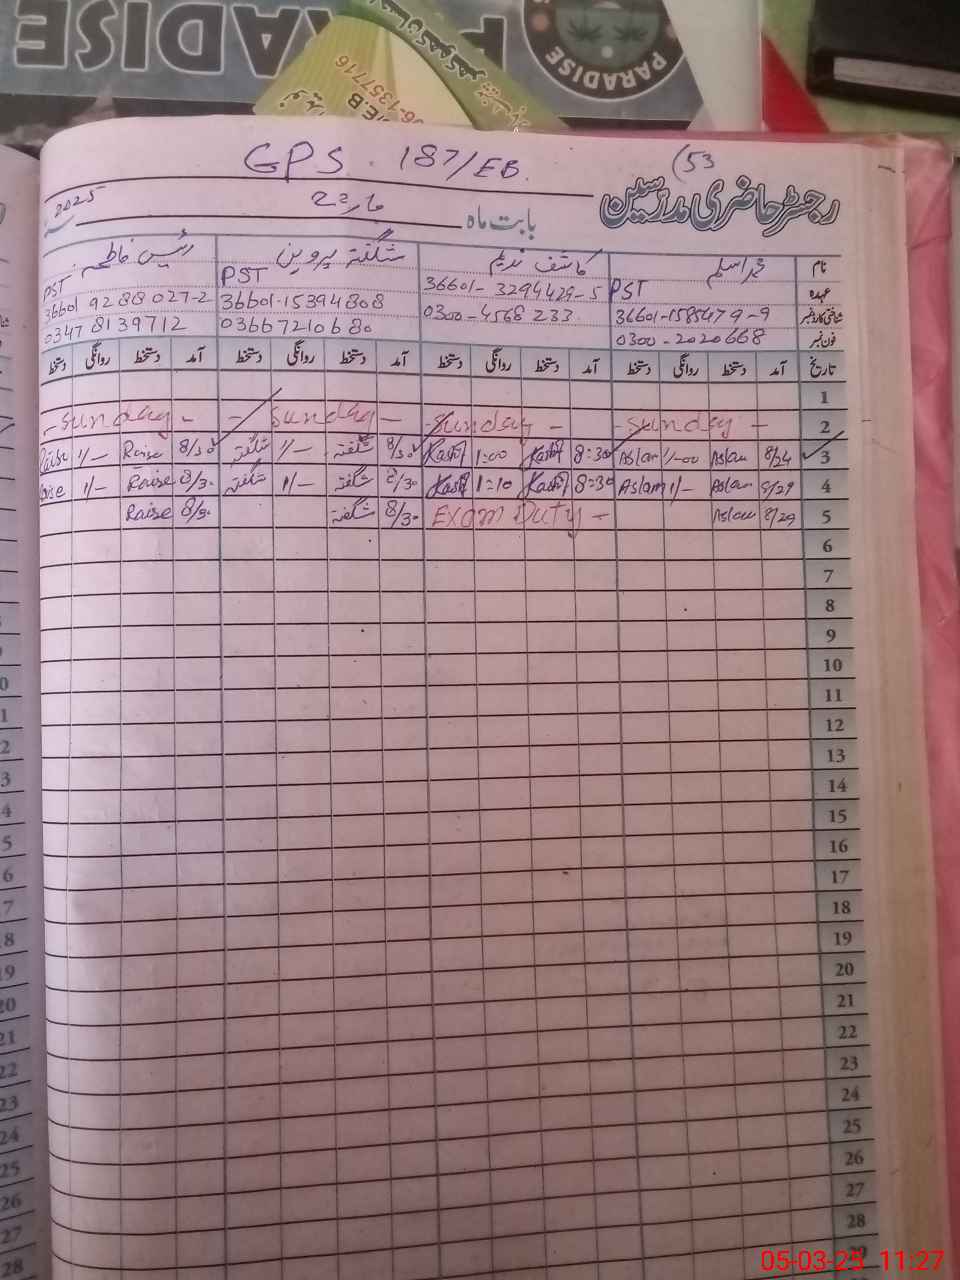 PARADISE
PARADISE
0-1357716
GPS. 187/EB.
(53
رجسٹر حاضری مدرسین
بابت ماہ مارچ 2025
نام محمد اسلم کاشف ندیم شگفتہ پروین رئیس فاطمہ
عہدہ PST PST PST
شناختی کارڈ نمبر 36601-1585479-9 36601-3294429-5 36601-15394808 36601 9288027-2
فون نمبر 0300-2020668 0300-4568233 03667210680 0347 8139712
تاریخ آمد دستخط روانگی دستخط آمد دستخط روانگی دستخط آمد دستخط روانگی دستخط آمد دستخط روانگی دستخط
1
2 -sunday- -sunday- -sunday- -sunday-
3 8/24 Aslam 1/-00 Aslam 8:30 Kashif 1:00 Kashif 8/30 شگفتہ 1/- شگفتہ 8/30 Raise 1/- Raise
4 8/29 Aslam 1/- Aslam 8:30 Kashif 1:10 Kashif 8/30 شگفتہ 1/- شگفتہ 8/30 Raise 1/- Raise
5 8/29 Aslam Exam Duty - 8/30 شگفتہ 8/30 Raise
6
7
8
9
10
11
12
13
14
15
16
17
18
19
20
21
22
23
24
25
26
27
28
29
05-03-25 11:27